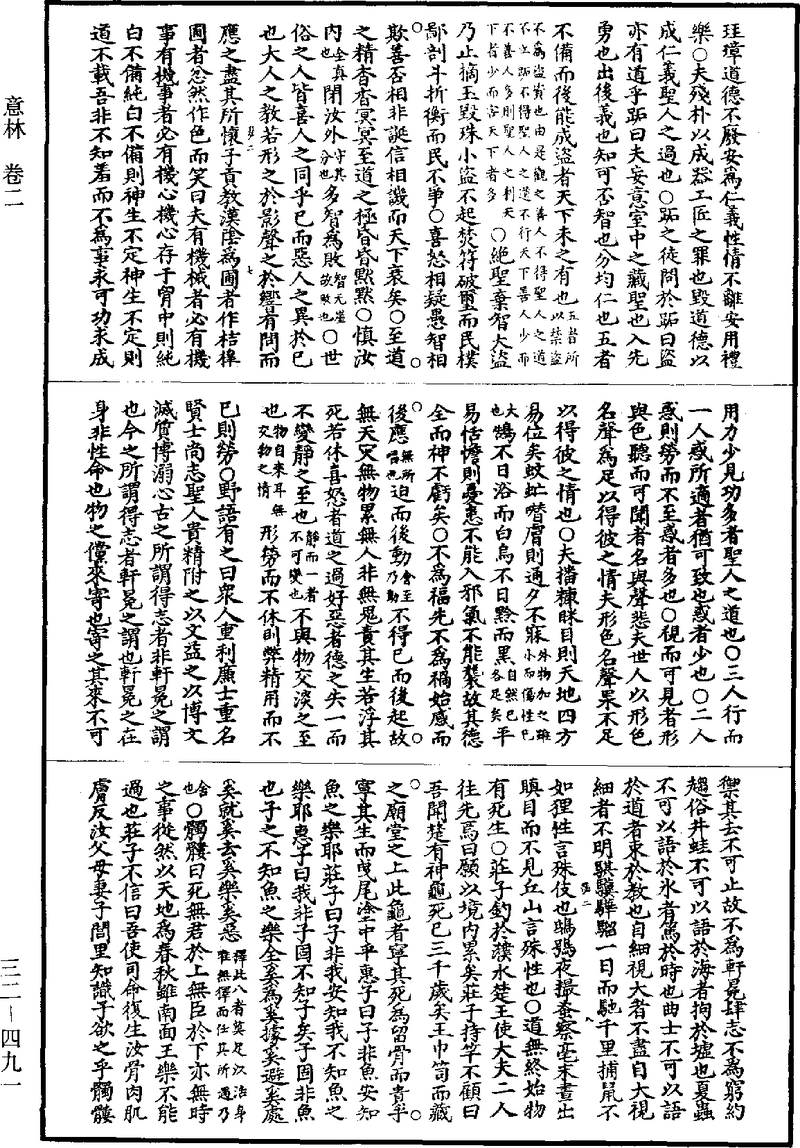 意林 卷二
三二－四九一
珪璋道德不廢安為仁義性情不離安用禮
樂○夫殘朴以成器工匠之罪也毀道德以
成仁義聖人之過也○跖之徒問於跖曰盜
亦有道乎跖曰夫妄意室中之藏聖也入先
勇也出後義也知可否智也分均仁也五者
不備而後能成盜者天下未之有也五者所以禁盜
不為盜資也由是觀之善人不得聖人之道不立跖不得聖人之道不行天下善人少而
不善人多則聖人之利天下者少而害天下者多○絕聖棄智大盜
乃止摘玉毀珠小盜不起焚符破璽而民樸
鄙剖斗折衡而民不爭○喜怒相疑愚智相
欺善否相非誕信相譏而天下衰矣○至道
之精杳杳冥冥至道之極昏昏默默○慎汝
內全真也閉汝外守其分也多智為敗智无崖故敗也○世
俗之人皆喜人之同乎已而惡人之異於已
也大人之教若形之於影聲之於響有問而
應之盡其所懷子貢教漢陰為圃者作桔槔
圃者忿然作色而笑曰夫有機械者必有機
事有機事者必有機心機心存于胷中則純
白不備純白不備則神生不定神生不定則
道不載吾非不知羞而不為事求可功求成
用力少見功多者聖人之道也○三人行而
一人惑所適者猶可致也惑者少也○二人
惑則勞而不至惑者多也○視而可見者形
與色聽而可聞者名與聲悲夫世人以形色
名聲為足以得彼之情夫形色名聲果不足
以得彼之情也○夫播糠眯目則天地四方
易位矣蚊虻噆膚則通夕不寐外物加之雖小而傷性已
大也鵠不日浴而白烏不日黔而黑自然已各足矣平
易恬憺則憂患不能入邪氣不能襲故其德
全而神不虧矣○不為福先不為禍始感而
後應無所唱也迫而後動會至乃動不得已而後起故
無天災無物累無人非無鬼責其生若浮其
死若休喜怒者道之過好惡者德之失一而
不變靜之至也靜而一者不可變也不與物交淡之至
也物自來耳無交物之情形勞而不休則弊精用而不
已則勞○野語有之曰衆人重利廉士重名
賢士尚志聖人貴精附之以文益之以博文
滅質博溺心古之所謂得志者非軒冕之謂
也今之所謂得志者軒冕之謂也軒冕之在
身非性命也物之儻來寄也寄之其來不可
禦其去不可止故不為軒冕肆志不為窮約
趨俗井蛙不可以語於海者拘於墟也夏蟲
不可以語於氷者篤於時也曲士不可以語
於道者束於教也自細視大者不盡自大視
細者不明騏驥驊騮一日而馳千里捕鼠不
如狸性言殊伎也鴟鵂夜撮蚤察毫末晝出
瞋目而不見丘山言殊性也○道無終始物
有死生○莊子釣於濮水楚王使大夫二人
往先焉曰願以境內累矣莊子持竿不顧曰
吾聞楚有神龜死已三千歲矣王巾笥而藏
之廟堂之上此龜者寧其死為留骨而貴乎
寧其生而曳尾塗中乎惠子曰子非魚安知
魚之樂耶莊子曰子非我安知我不知魚之
樂耶惠子曰我非子固不知子矣子固非魚
也子之不知魚之樂全奚為奚據奚避奚處
奚就奚去奚樂奚惡擇此八者莫足以活身唯無擇而任其所遇乃
舍也○髑髏曰死無君於上無臣於下亦無時
之事從然以天地為春秋雖南面王樂不能
過也莊子不信曰吾使司命復生汝骨肉肌
膚反汝父母妻子閭里知識子欲之乎髑髏